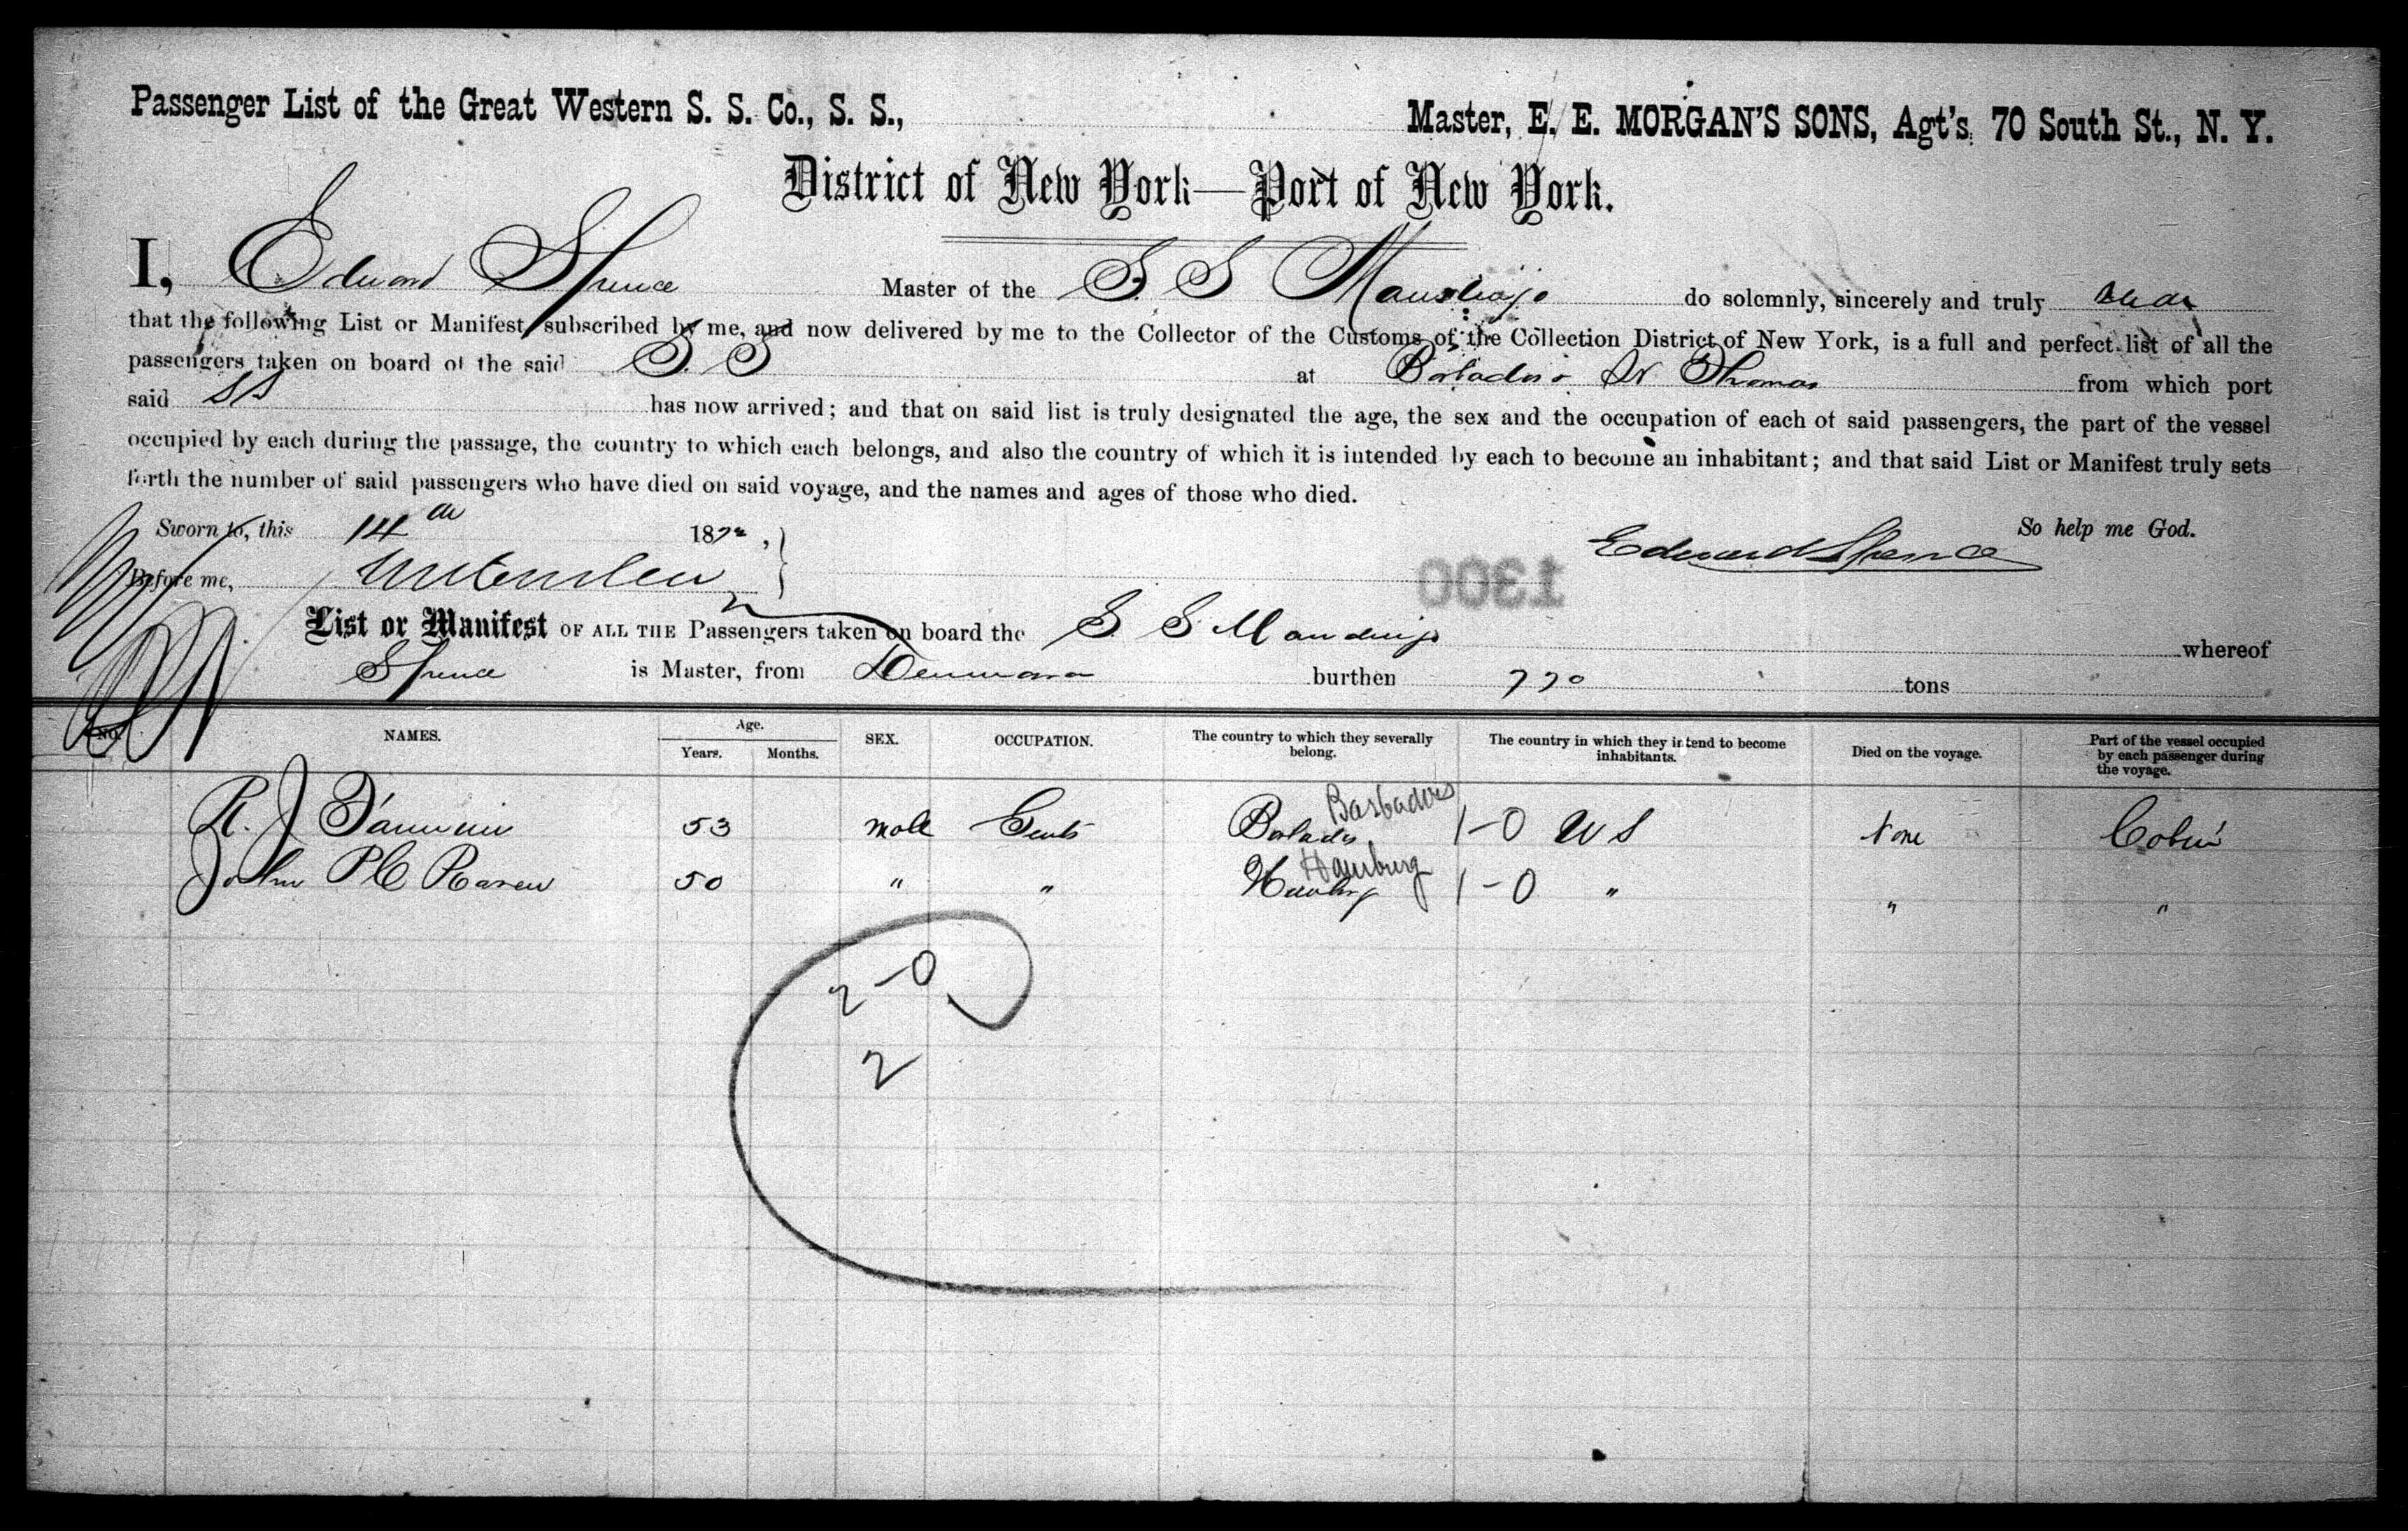 Passenger List of the Great Western S. S. Co., S. S., Master, E. E. MORGAN'S SONS, Agt's, 70 South St., N. Y.
District of New York—Port of New York.
I, Edward Spence Master of the S. S do solemnly, sincerely and truly
that the following List or Manifest subscribed by me, and now delivered by me to the Collector of the Customs of the Collection District of New York, is a full and perfect list of all the
passengers taken on board of the said S. S at Barbados St Thomas from which port
said SS has now arrived; and that on said list is truly designated the age, the sex and the occupation of each of said passengers, the part of the vessel
occupied by each during the passage, the country to which each belongs, and also the country of which it is intended by each to become an inhabitant; and that said List or Manifest truly sets
forth the number of said passengers who have died on said voyage, and the names and ages of those who died.
Sworn to, this 14th 187 So help me God.
Edward Spence
Before me, 1300
List or Manifest OF ALL THE Passengers taken on board the S. S. Mandingo whereof
Spence is Master, from Demerara burthen 770 tons
NO. NAMES. Age. Years. Months. SEX. OCCUPATION. The country to which they severally belong. The country in which they intend to become inhabitants. Died on the voyage. Part of the vessel occupied by each passenger during the voyage.
Barbados
R. J 53 male Gents Barbados 1-0 U S None Cabin
Hamburg
John P C Raven 50 " " Hamburg 1-0 " " "
2-0
2